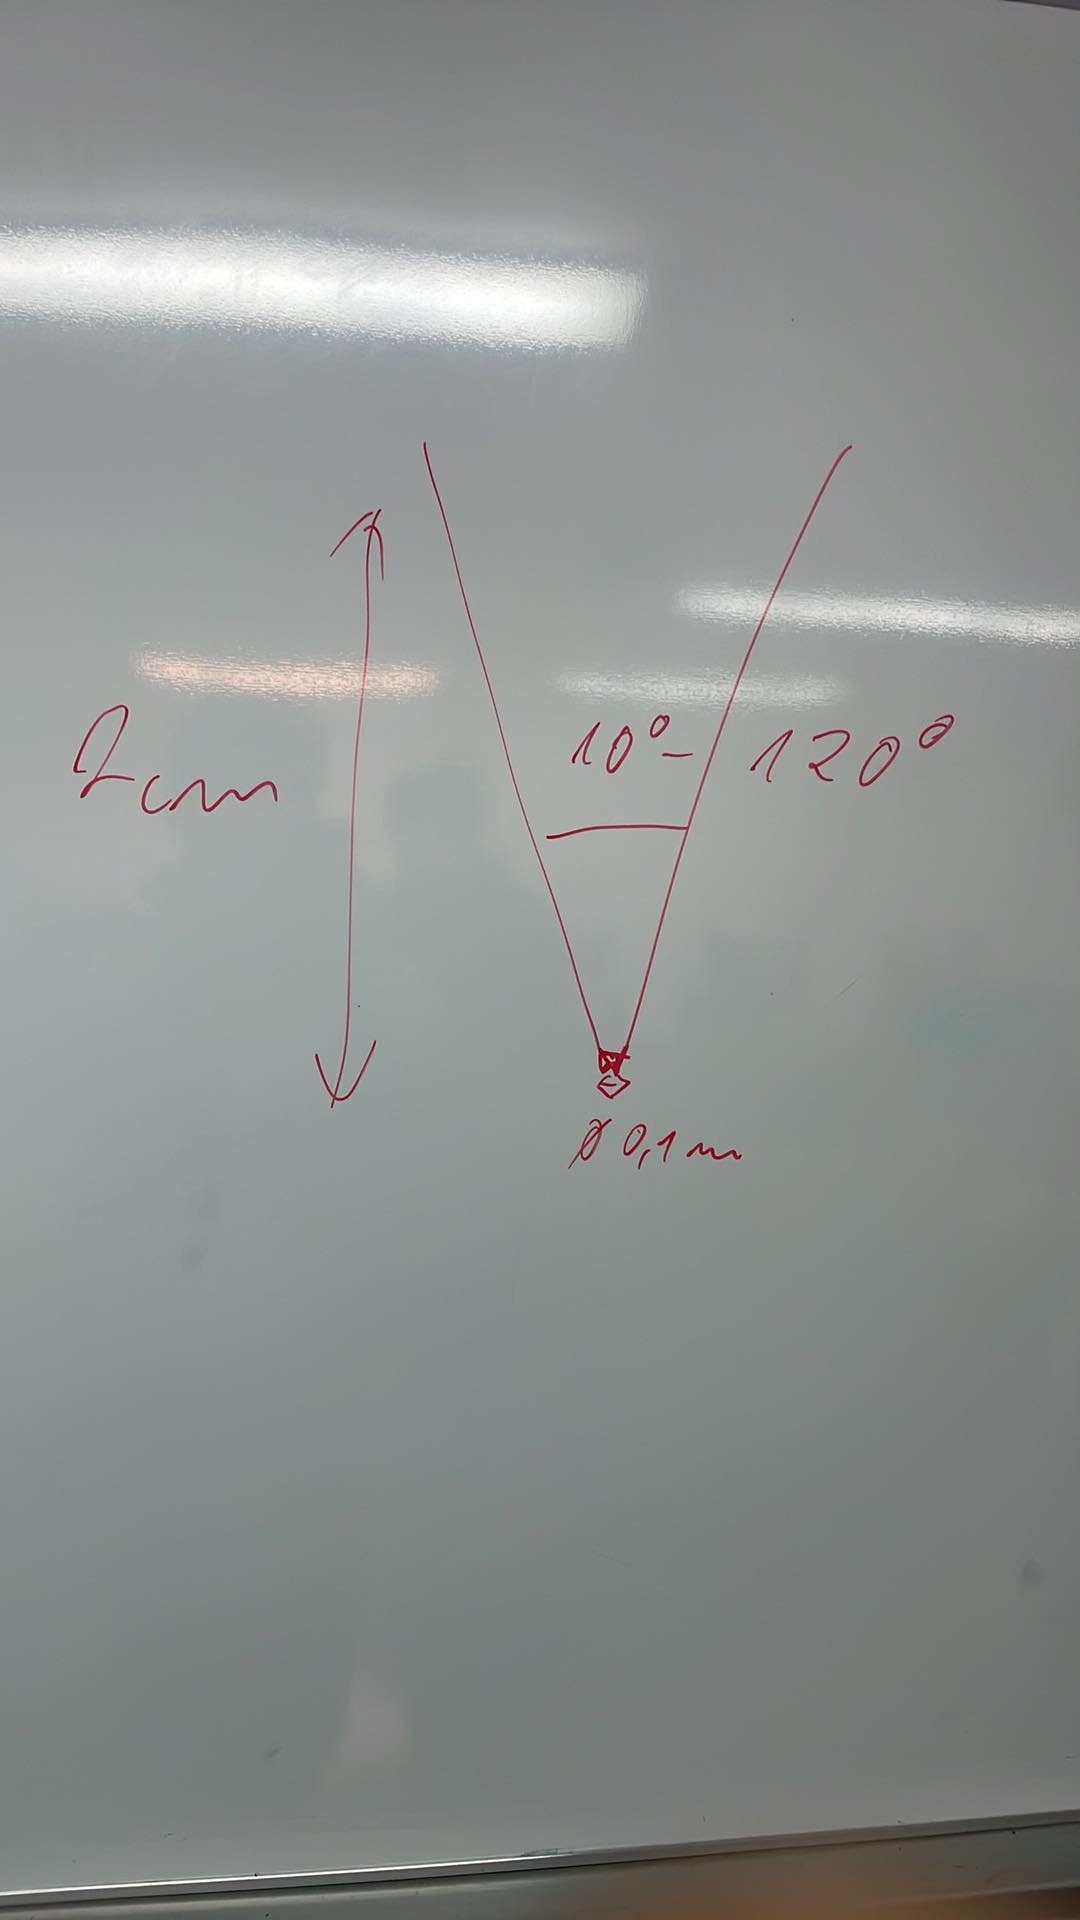 2cm
10°- 120°
Ø 0,1m